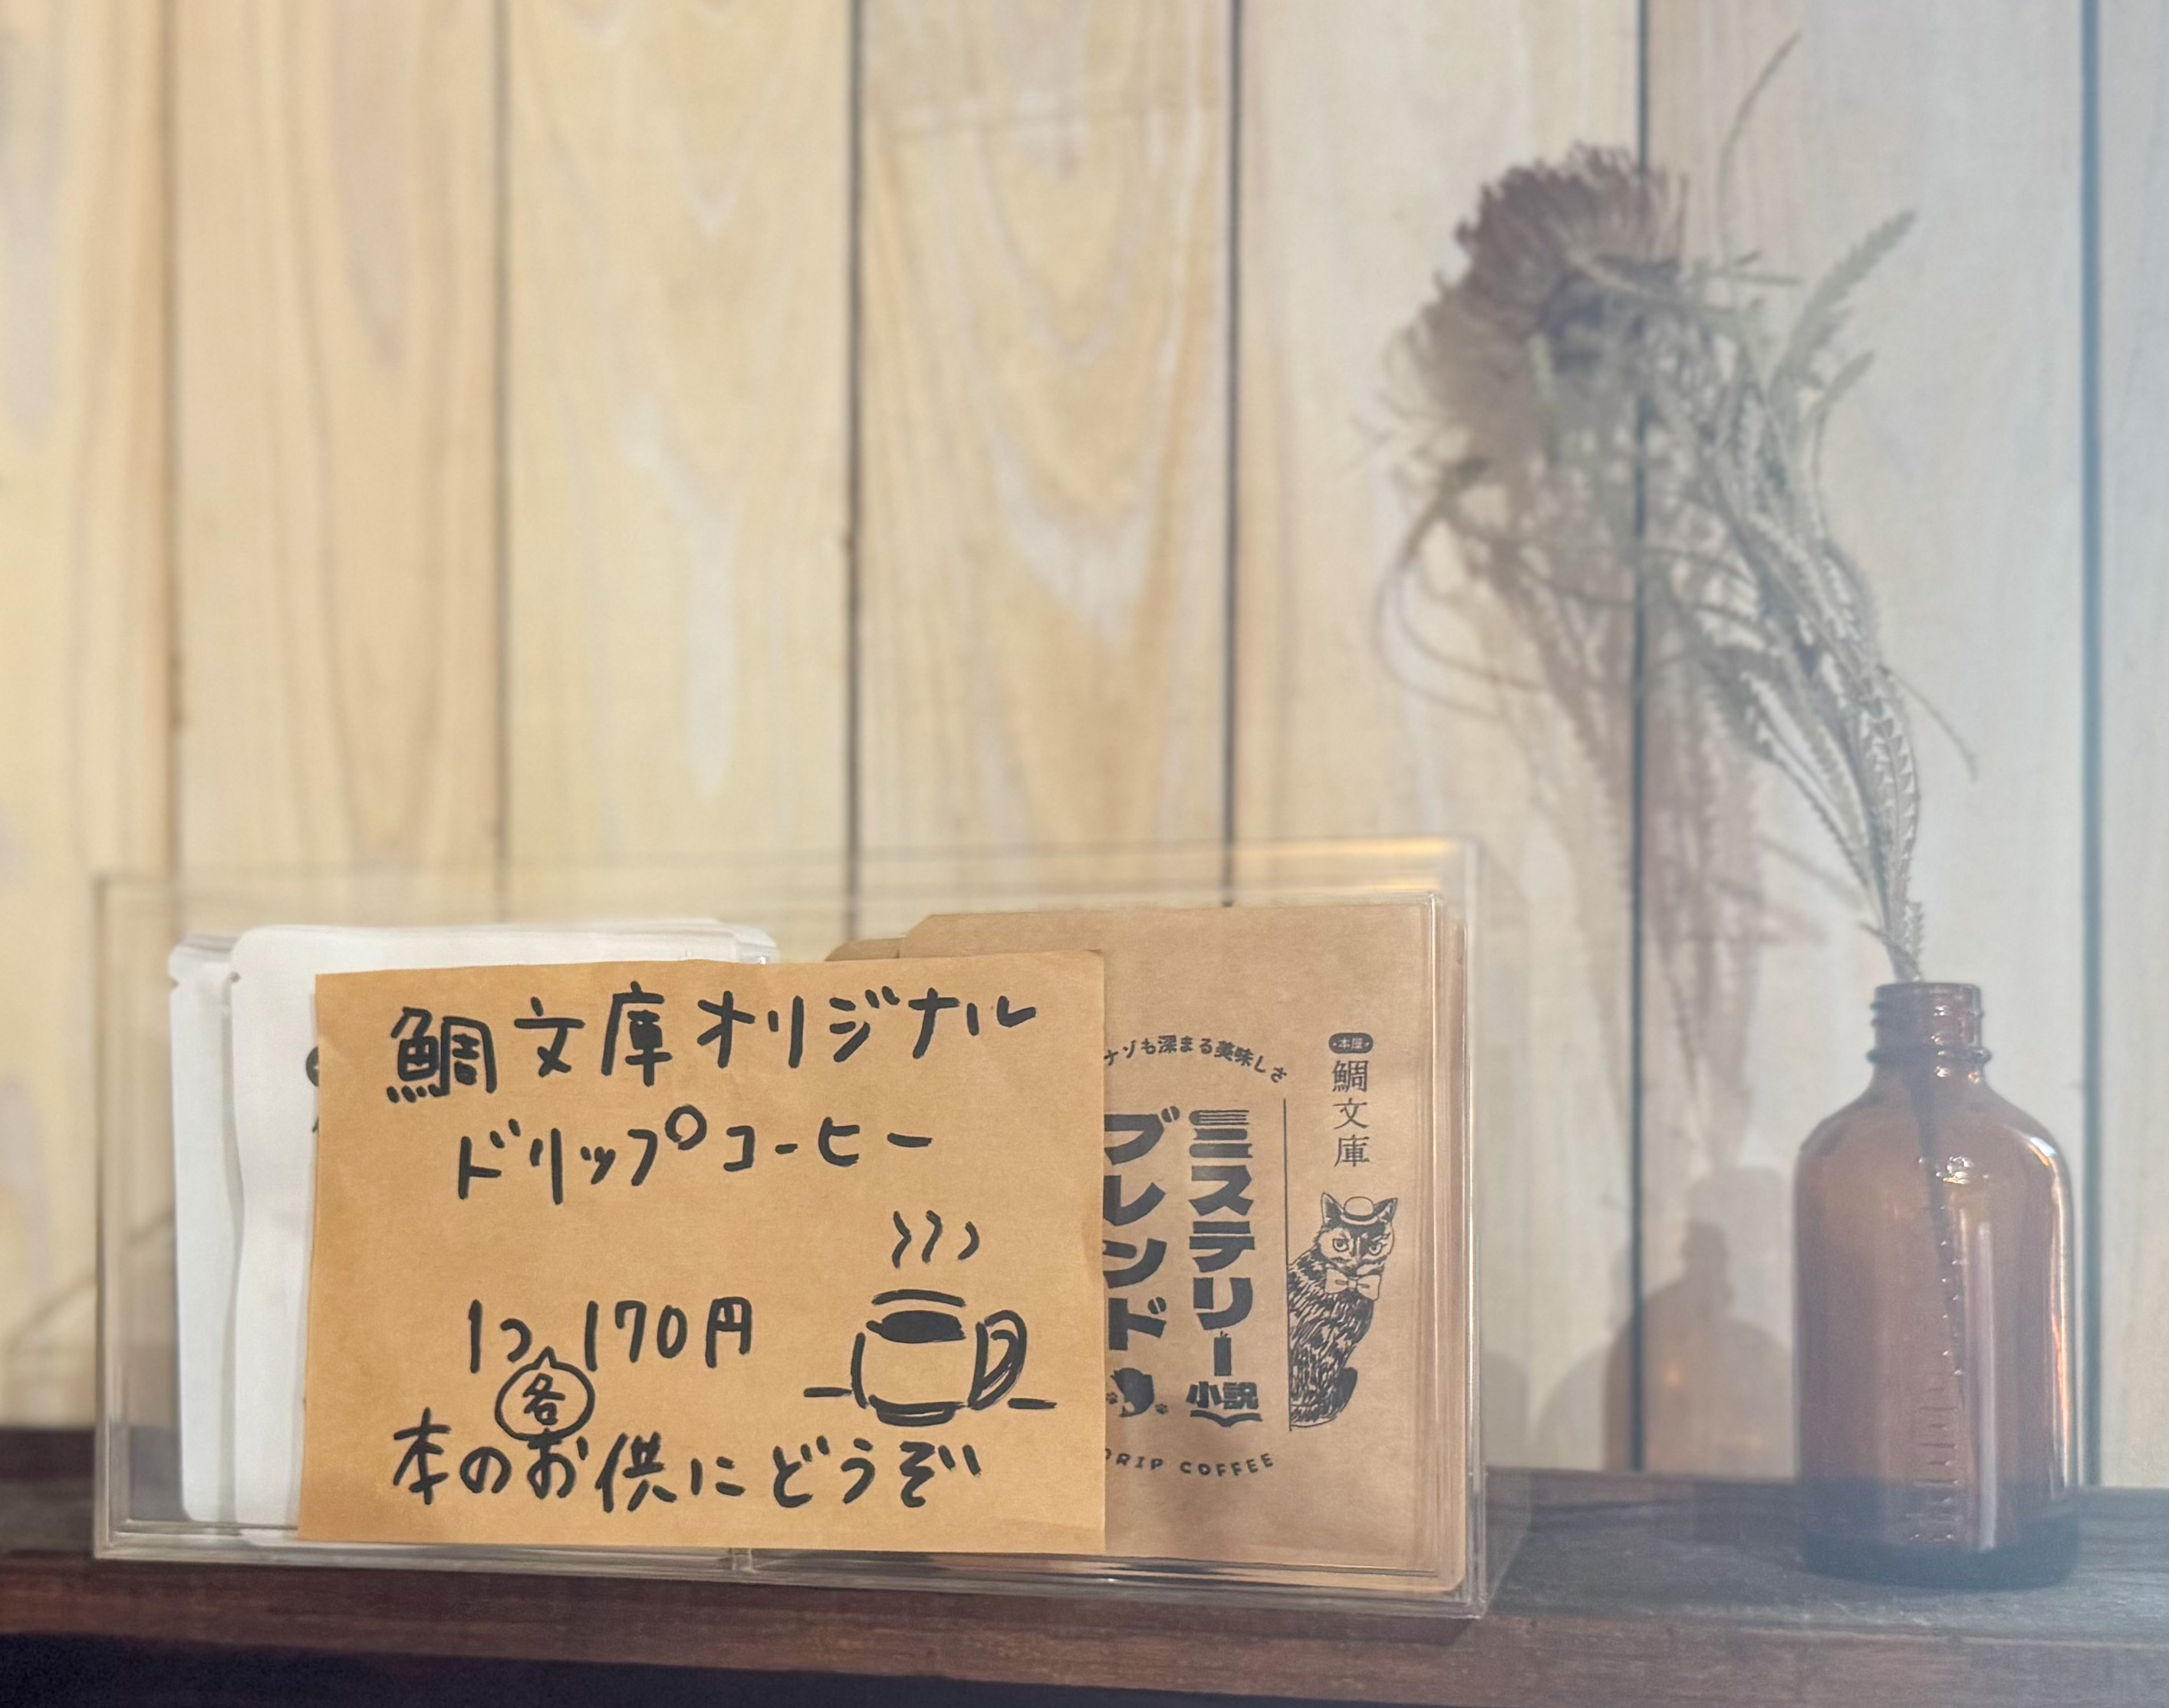 鯛文庫オリジナル
ドリップコーヒー
1つ 各 170円
本のお供にどうぞ
ナゾも深まる美味しさ
ミステリー小説
ブレンド
DRIP COFFEE
本屋
鯛文庫